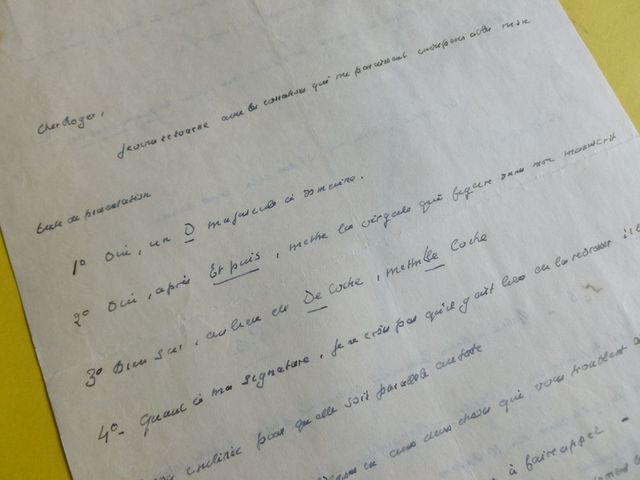 Cher Roger,
Je vous retourne avec les corrections qui me paraissent
Texte de présentation
1° Oui, un D majuscule à Domaine.
2° Oui, après Et puis, mettre la virgule qui figure dans mon manuscrit
3° Bien sûr, au lieu de De Coche, mettre Le Coche
4° - Quant à ma signature, je ne crois pas qu'il y ait lieu de la redresser
pour qu'elle soit parallèle au texte
deux choses qui vous troublent
à faire appel -